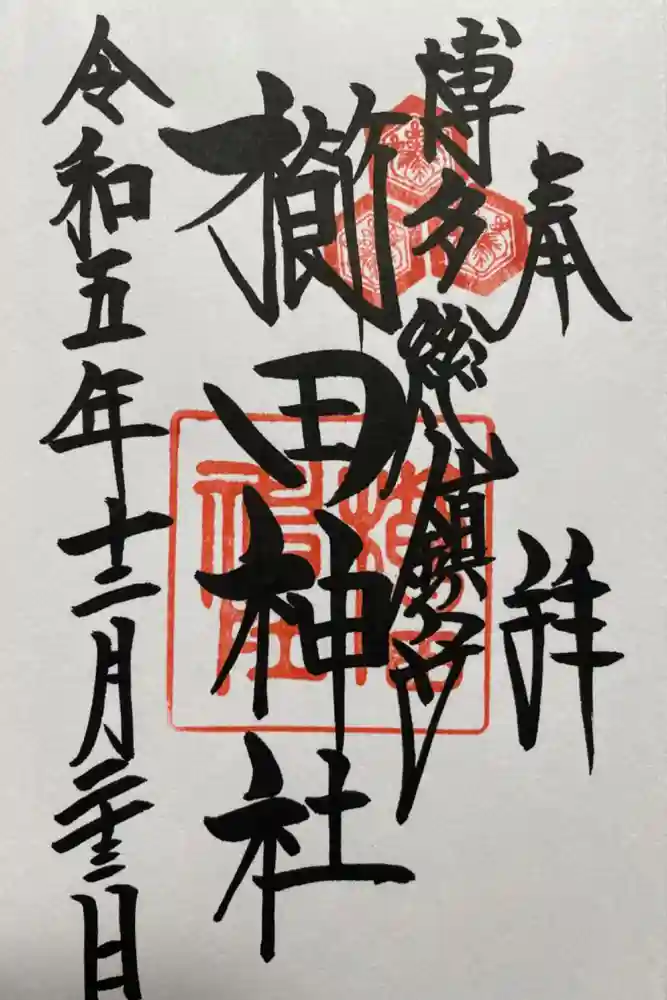 奉拝
博多總鎮守
櫛田神社
令和五年十二月二十三日